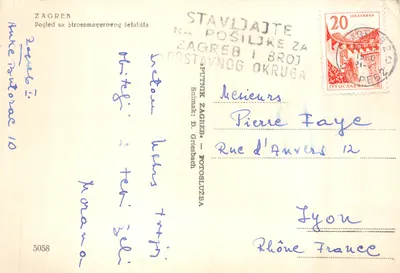 ZAGREB
Pogled sa Strossmayerovog šetališta
STAVLJAJTE
NA POŠILJKE ZA
ZAGREB I BROJ
POSTAVNOG OKRUGA
20
JUGOSLAVIJA
Zagreb
10
Sretnu Novu
obitelji i tebi želi
Morana
"PUTNIK ZAGREB" — FOTOSLUŽBA
Snimak: Đ. Griesbach
Messieurs
Pierre Faye
Rue d'Anvers 12
Lyon
Rhône France
5058